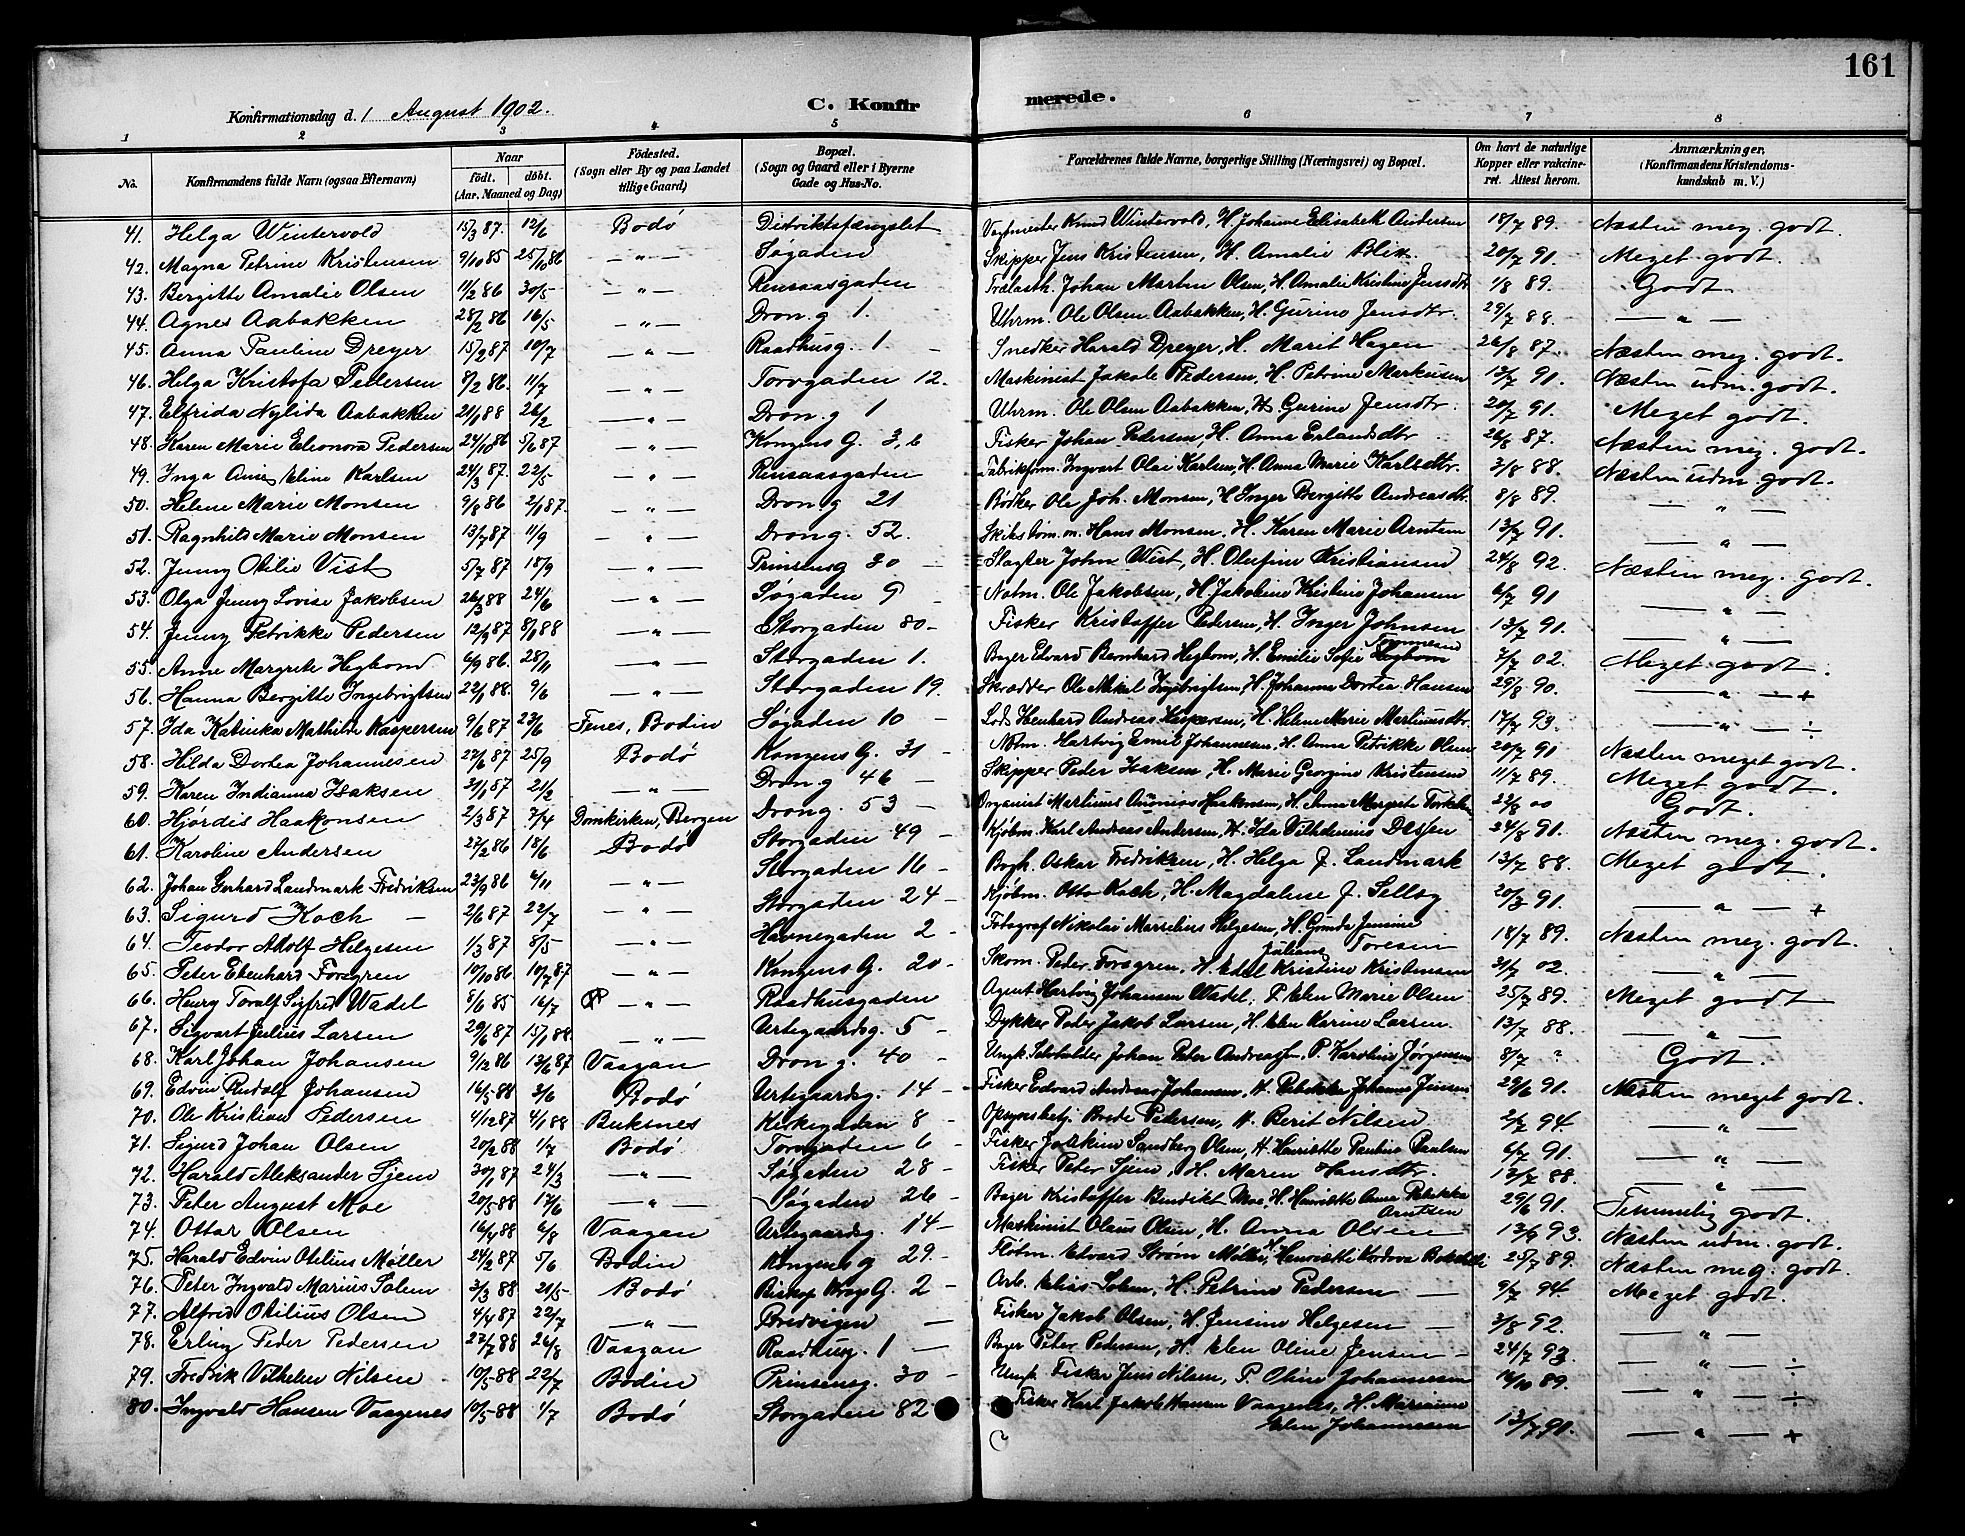 161
Konfirmationsdag d. 1 August 1902.
C. Konfirmerede.
1 2 3 4 5 6 7 8
No. Konfirmandens fulde Navn (ogsaa Efternavn) Naar födt. döbt. (Aar, Maaned og Dag) Födested. (Sogn eller By og paa Landet tillige Gaard) Bopæl. (Sogn og Gaard eller i Byerne Gade og Hus-No. Forældrenes fulde Navne, borgerlige Stilling (Næringsvei) og Bopæl. Om havt de naturlige Kopper eller vakcineret. Attest herom. Anmærkninger. (Konfirmandens Kristendomskundskab m. V.)
41. Helga Wintervold 15/3 87. 12/6 Bodö Distriktsfængslet Vagtmester Knud Wintervold, H. Johanne Elisabeth Andersen 18/7 89. Næsten meg. godt.
42. Magna Petrine Kristensen 9/10 85 25/10 86 — " — Søgaden Skipper Jens Kristensen, H. Amalie Blix 20/7 91. Meget godt.
43. Bergitte Amalie Olsen 11/2 86 30/5 — " — Rensaasgaden Trælasth. Johan Martin Olsen, H. Amalie Kristine Jensdtr 1/8 89. Godt.
44. Agnes Aabakken 28/2 86 16/5 — " — Dron.g 1. Uhrm. Ole Olsen Aabakken, H. Gurine Jensdtr. 29/7 88. — " —
45. Anna Pauline Dreyer 15/2 87 10/7 — " — Raadhusg. 1 — Snedker Harald Dreyer, H. Marit Hagen 26/8 87. Næsten meg. godt.
46. Helga Kristofa Pedersen 8/2 86. 11/7 — " — Torvgaden 12. Maskinist Jakob Pedersen, H. Petrine Markusen 13/7 91. Næsten udm. godt.
47. Elfrida Nylida Aabakken 21/1 88 26/2 — " — Dron.g 1 Uhrm. Ole Olsen Aabakken, H. Gurine Jensdtr. 20/7 91. Meget godt.
48. Karen Marie Eleonora Pedersen 24/10 86 5/6 87 — " — Kongens G. 3,6 Fisker Johan Pedersen, H. Anna Erlandsdtr 26/8 87. Næsten meg. godt.
49. Inga Eline Karlsen 24/3 87. 22/5 — " — Rensaasgaden Fabrikform. Ingvart Olai Karlsen, H. Anna Marie Karlsdtr. 3/8 88. Næsten udm. godt.
50. Helene Marie Monsen 9/8 86 2/1 87. — " — Drong 21 Bödker Ole Joh. Monsen, H. Inger Bergitte Andreasdtr. 8/8 89. — " —
51. Ragnhild Marie Monsen 13/7 87 11/9 — " — Drong. 52. Hans Monsen, H. Karen Marie Arntsen 13/7 91. — " —
52. Jenny Otilie Vist 5/7 87 18/9 — " — Prinsensg 30 — Slagter John Wist, H. Olufine Kristiansen 24/8 92. Næsten meg. godt.
53. Olga Jenny Lovise Jakobsen 26/3 88 24/6 — " — Søgaden 9 — Notm. Ole Jakobsen, H. Jakobine Kristine Johansen 6/7 91 — " —
54. Jenny Petrikke Pedersen 12/9 87 8/1 88 — " — Storgaden 80 — Fisker Kristoffer Pedersen, H. Inger Johnsen 13/7 91. — " —
55. Anne Margrete Hegbom 6/9 86. 28/11 — " — Storgaden 1. Bager Edvard Bernhard Hegbom, H. Emilie Sofie 7/7 02. Meget godt.
56. Hanna Bergitte Ingebrigtsen 22/1 88. 9/6 — " — Storgaden 19. Skrædder Ole Mikal Ingebrigtsen, H. Johanna Dortea Hansen 29/8 90. — " — +
57. Ida Katinka Mathilde Kaspersen 9/6 87 23/6 Fenes, Bodin Søgaden 10 — Lods Ebenhard Andreas Kaspersen, H. Helene Marie Martinusdtr. 17/7 93. — " — ÷
58. Hilda Dortea Johannesen 27/6 87 25/9 Bodö Kongens G. 31 — Notm. Hartvig Emil Johannesen, H. Anna Petrikke Olsen 20/7 91 Næsten meget godt.
59. Karen Indianna Isaksen 31/1 87 21/2 — " — Drong 46 — Skipper Peder Isaksen, H. Marie Georgine Kristensen 11/7 89. Meget godt.
60. Hjördis Haakonsen 2/3 87 7/4 Domkirken, Bergen Drong. 53 — Organist Martinus Haakonsen, H. Anne Margrete 22/8 00 Godt.
61. Karoline Andersen 27/2 86 18/6 Bodö Storgaden 49 — Kjöbm. Karl Andreas Andersen, H. Ida Vilhelmine 24/8 91. Næsten meg. godt.
62. Johan Gerhard Landmark Fredriksen 23/9 86 6/11 — " — Storgaden 16 — Bogh. Oskar Fredriksen, H. Helga J. Landmark 13/7 88. Meget godt.
63. Sigurd Koch — 2/6 87 22/7 — " — Storgaden 24 — Kjöbm. Otto Koch, H. Magdalene J. Selboy 20/3 91. — " — +
64. Teodor Adolf Helgesen 1/3 87 8/5 — " — Havnegaden 2 — Fotograf Nikolai Marselius Helgesen, H. Gunda Jensine Juliane Toresen 18/7 89. Næsten meg. godt.
65. Peter Ebenhard Forsgren 10/10 86 10/7 87 — " — Kongens G. 20 — Skom. Peder Forsgren, H. Edel Kristine Kristensen 31/7 02. — " —
66. Henry Toralf Sigfred Wadel 8/6 85 16/7 — " — Raadhusgaden Agent Hartvig Johansen Wadel, P. Elen Marie Olsen 25/7 89. Meget godt
67. Sigvart Julius Larsen 29/6 87 15/1 88. — " — Urtegaardsg. 5 — Dykker Peder Jakob Larsen, H. Elen Karine Larsen. 13/7 88. — " —
68. Karl Johan Johansen 9/12 86 13/6 87 Vaagan Drong. 40 — Ungk. Selvholder Johan Peter P. Karoline Jørgensen 8/7 ? Godt.
69. Edvin Rudolf Johansen 16/5 88 3/6 Bodö Urtegaardsg. 14 — Fisker Edvard Andreas Johansen, H. Petrikke Johanna Jensen 29/6 91. Næsten meget godt.
70. Ole Kristian Pedersen 4/12 87 4/1 88 Buksnes Kirkegaden 8 — Opsynsbetj. Brede Pedersen, H. Berit Nilsen 2/7 94. — " —
71. Sigurd Johan Olsen 20/2 88 1/7 Bodö Torvgaden 6 — Fisker Joakim Sandberg Olsen, H. Henriette Pauline Paulsen 6/7 91. — " —
72. Harald Aleksander Sjem 30/1 87 24/3 — " — Søgaden 28 — Fisker Peter Sjem, H. Maren Hansdtr. 13/7 88. — " —
73. Peter August Moe 20/5 88 17/6 — " — Søgaden 26 — Bager Kristoffer Bendikt Moe, H. Henriette Anna Petrikke Arntsen 29/6 91. Temmelig godt.
74. Ottar Olsen 16/4 88 6/8 Vaagan Urtegaardsg. 14 — Maskinist Olaus Olsen, H. Anna Olsen 13/6 93. Næsten udm. godt.
75. Harald Edvin Otilius Møller 24/2 87 5/6 Bodin Kongens g 29. — Edvard Strøm Møller, Henriette 25/7 89. Næsten meg. godt.
76. Peter Ingvald Marius Solem 3/3 88 21/5 — Bodö Biskop G. 2 — Arb. Elias Solem, H. Petrine Pedersen — 9/7 94 Meget godt.
77. Alfred Otilius Olsen 4/4 87 22/7 — " — Bredvigen — Fisker Jakob Olsen, H. Jensine Helgesen — 3/8 92. — " —
78. Erling Peder Pedersen 27/7 88 26/8 Vaagan Raadhusg. 1 — Bager Peter Pedersen, H. Elen Oline Jensen — 24/7 93. — " — ÷
79. Fredrik Vilhelm Nilsen 10/5 88 22/7 Bodin Prinsensg. 30 — Ungk. Fisker Jens Nilsen, P. Oline Johannesen 14/10 89. — " — ÷
80. Ingvald Hansen Vaagenes 10/5 88 1/7 Bodö Storgaden 82 Fisker Karl Jakob Hansen Vaagenes, H. Marianne Elen Johannessen 13/7 91. — " — +